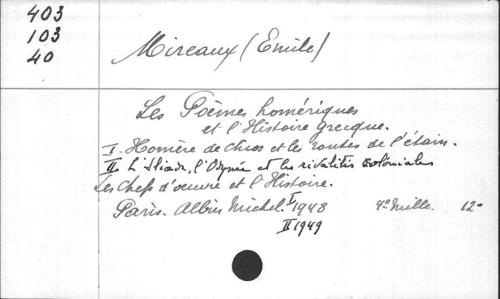 403
103
40
Mireaux (Emile)
Les Poèmes homériques
et l'Histoire grecque.
I. Homère de Chios et les routes de l'étain.
II. L'Iliade, l'Odyssée et les rivalités coloniales
Les Chefs d'oeuvre et l'Histoire.
Paris. Albin Michel. I 1948 4e mille. 12°
II 1949